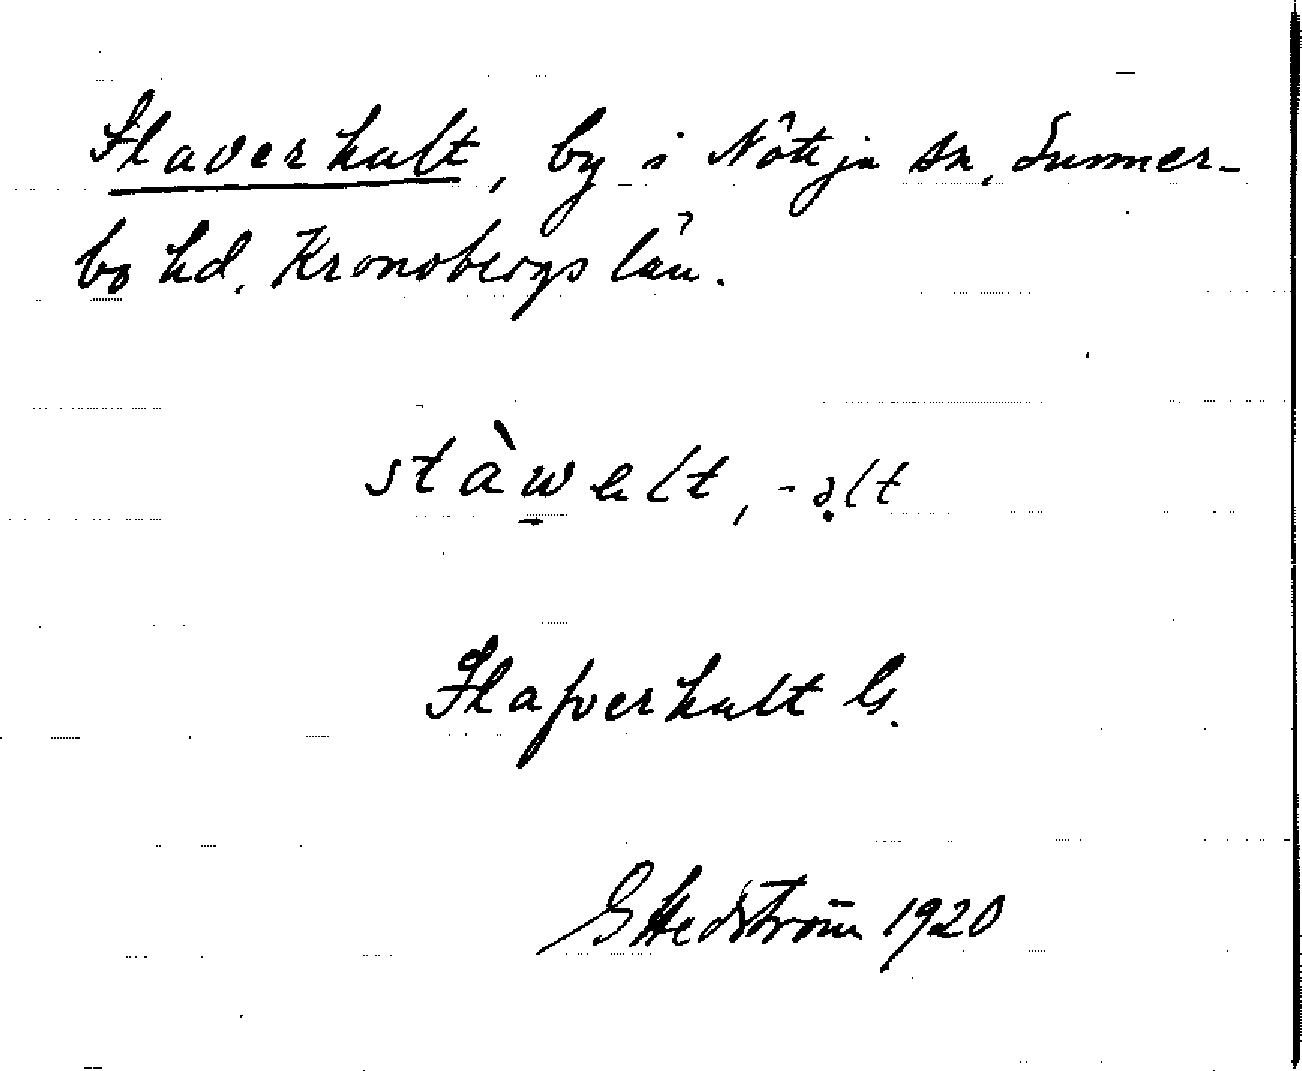 Staverhult, by i Nöttja sn, Sunner-
bo hd, Kronobergs län.
stàwelt, -əlt
Stafverhult G.
G Hedström 1920